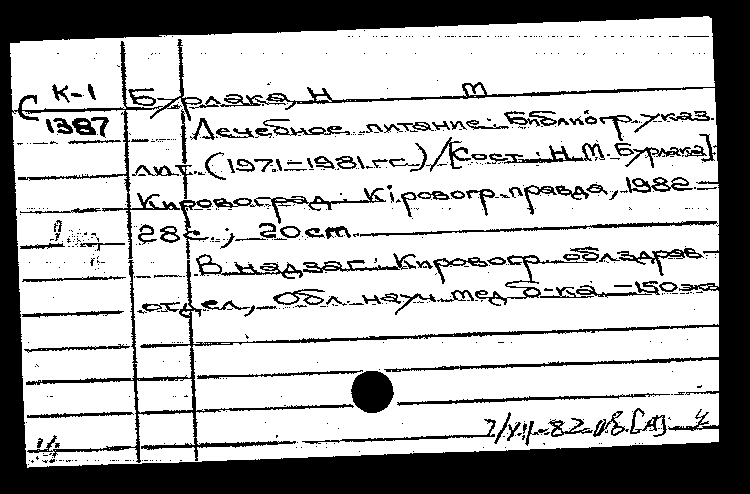 К-1
С 1387
Бурлака, Н М
Лечебное питание: Библиогр. указ.
лит. (1971-1981 гг.) / [Сост.: Н.М. Бурлака].
Кировоград: Кiровогр. правда, 1982 –
28с.; 20 cm.
В надзаг.: Кировогр. облздрав-
отдел, Обл. науч. мед. б-ка. – 150 экз
7/VII-82